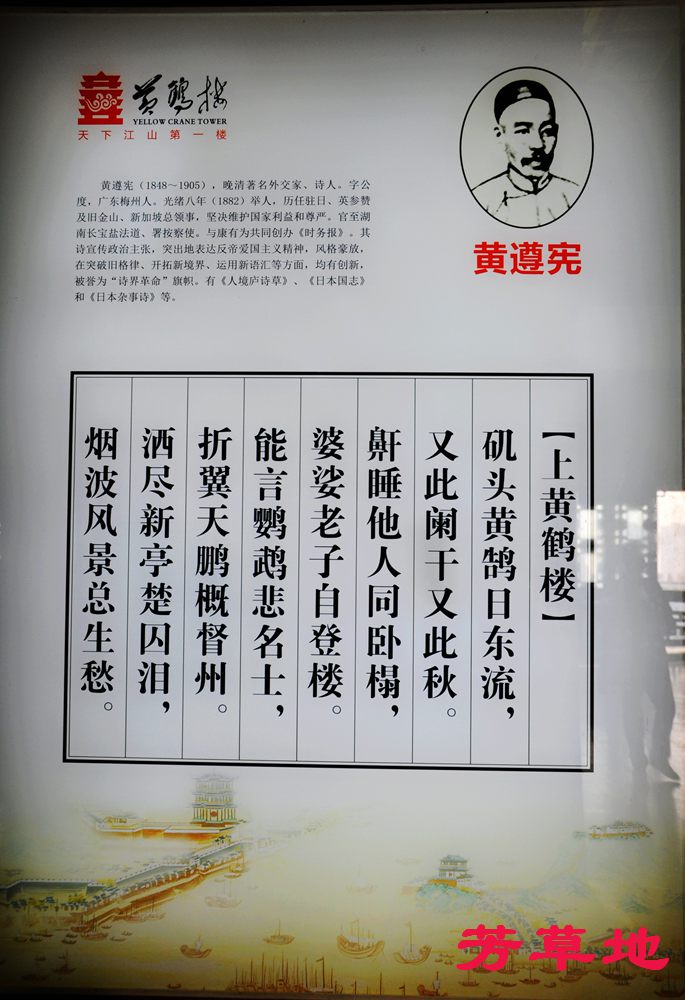 黄鹤楼
YELLOW CRANE TOWER
天下江山第一楼
黄遵宪（1848～1905），晚清著名外交家、诗人。字公
度，广东梅州人。光绪八年（1882）举人，历任驻日、英参赞
及旧金山、新加坡总领事，坚决维护国家利益和尊严。官至湖
南长宝盐法道、署按察使。与康有为共同创办《时务报》。其
诗宣传政治主张，突出地表达反帝爱国主义精神，风格豪放，
在突破旧格律、开拓新境界、运用新语汇等方面，均有创新，
被誉为“诗界革命”旗帜。有《人境庐诗草》、《日本国志》
和《日本杂事诗》等。
黄遵宪
【上黄鹤楼】
矶头黄鹄日东流，
又此阑干又此秋。
鼾睡他人同卧榻，
婆娑老子自登楼。
能言鹦鹉悲名士，
折翼天鹏概督州。
洒尽新亭楚囚泪，
烟波风景总生愁。
芳草地